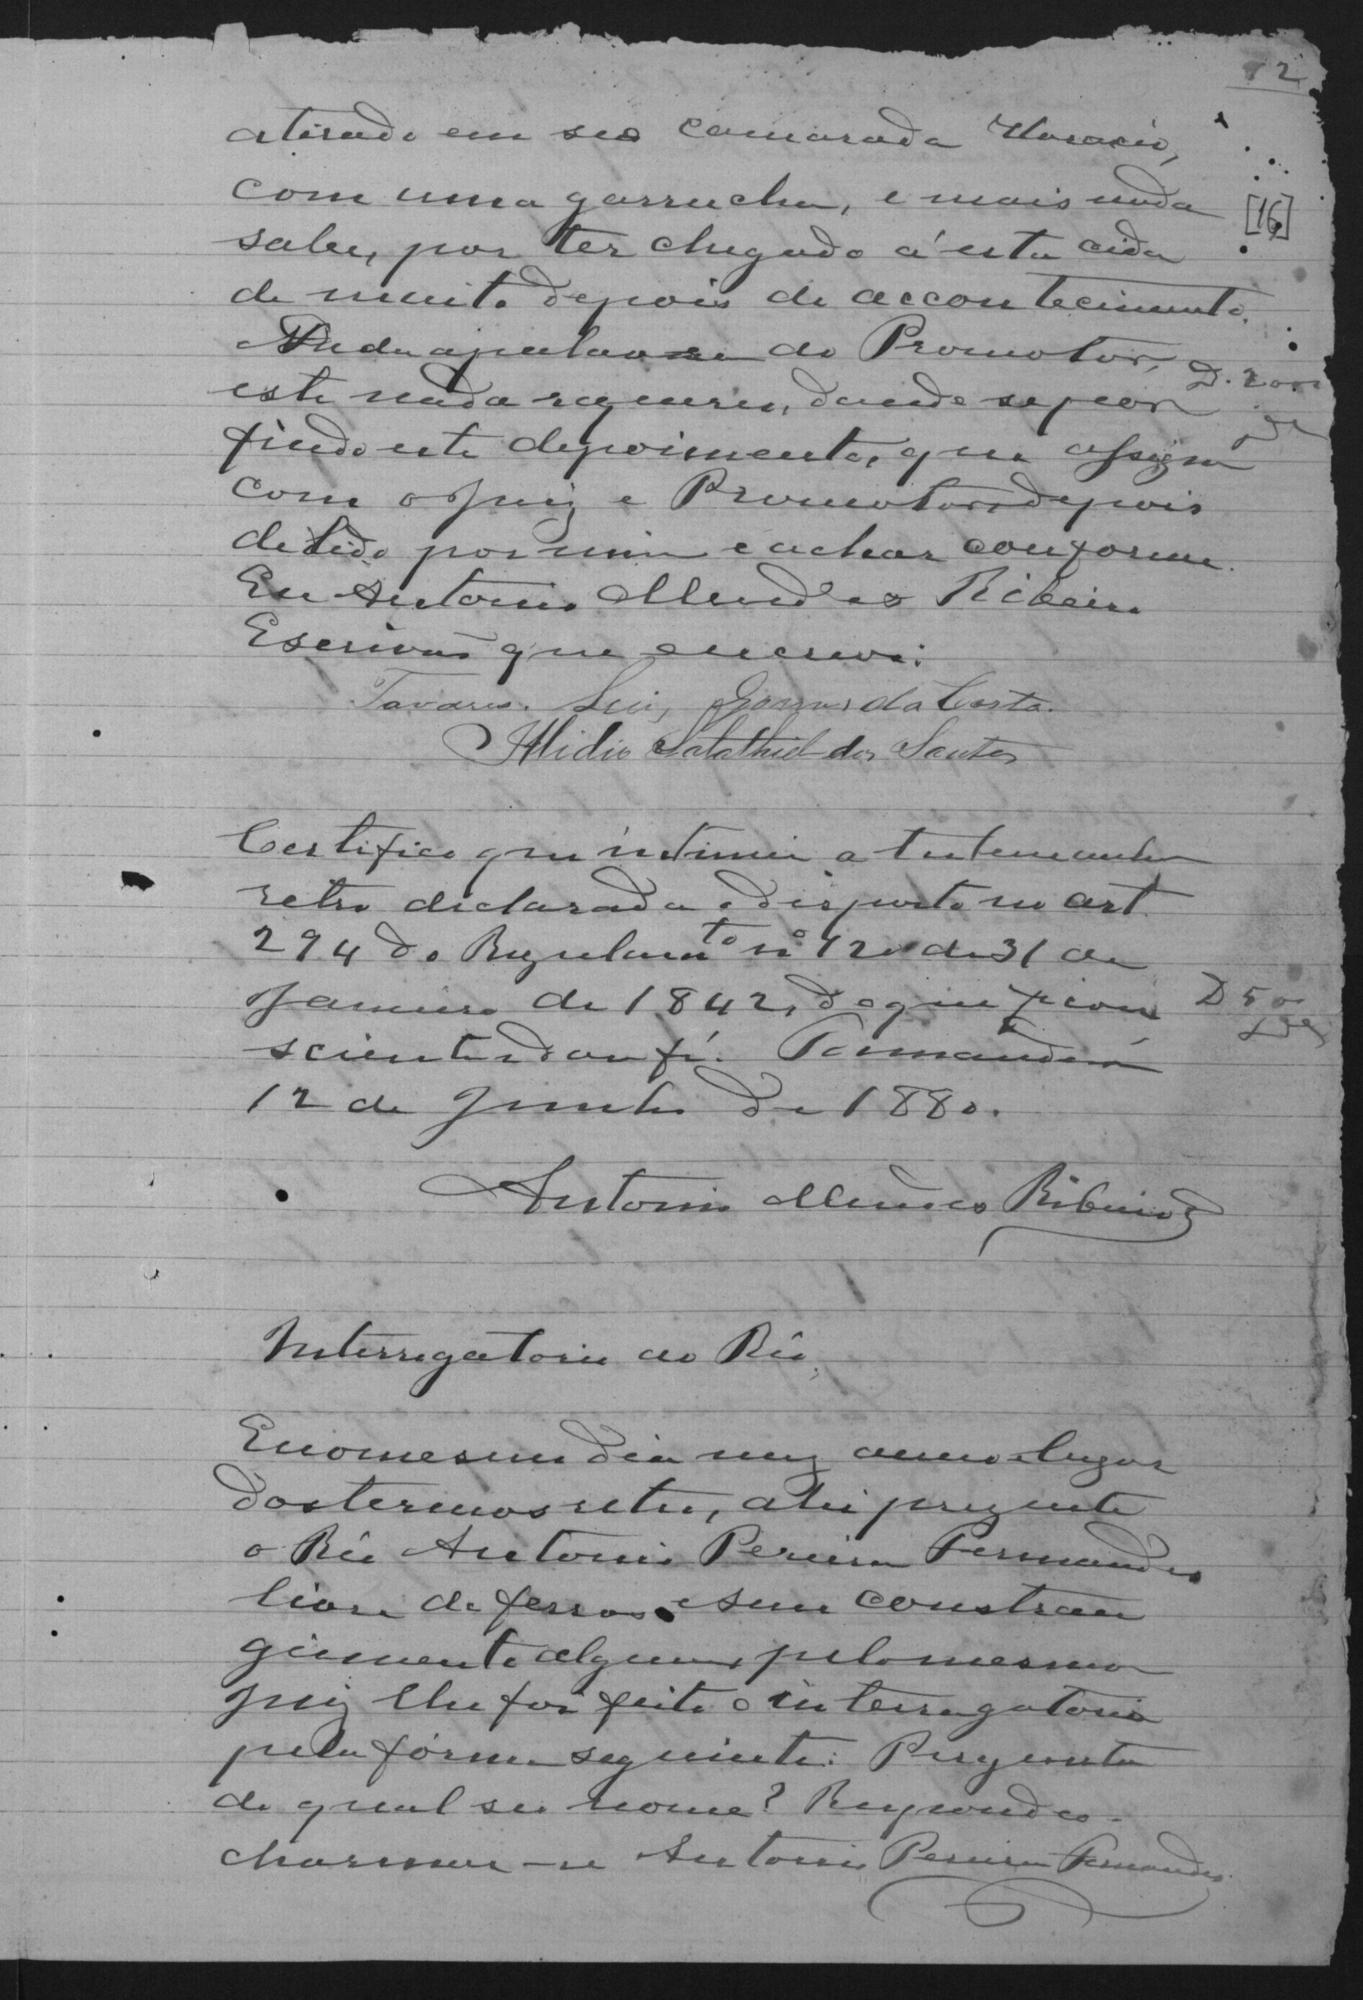 12
atirado em seo camarada Horacio,
com uma garrucha, e mais nada
[16]
sabe, por ter chegado á esta cida
de muito depois de accontecimento.
Dada a palavra ao Promotor,
este nada requereu, dando se por
findo este depoimento, que assigna
com o Juiz e Promotor, depois
de lido por mim e achar conforme.
Eu Antonio Mendes Ribeiro
Escrivão que escrevi:
Tavares. Luiz Gomes da Costa.
Illidio Salathiel dos Santos
Certifico que intimei a testemunha
retro declarada o disposto no art.
294 do Regulamto nº 120 de 31 de
Janeiro de 1842, do que ficou
sciente e dou fé.
12 de Junho de 1880.
Antonio Mendes Ribeiro
Interrogatorio ao Réo
E no mesmo dia mez anno e lugar
dos termos retro, ahi prezente
o Réo Antonio Pereira Fernandes
livre de ferros e sem constran
gimento algum, pelo mesmo
Juiz lhe foi feito o interrogatorio
pela fórma seguinte: Pergunta
do qual seo nome? Respondeo
chamar-se Antonio Pereira Fernandes.